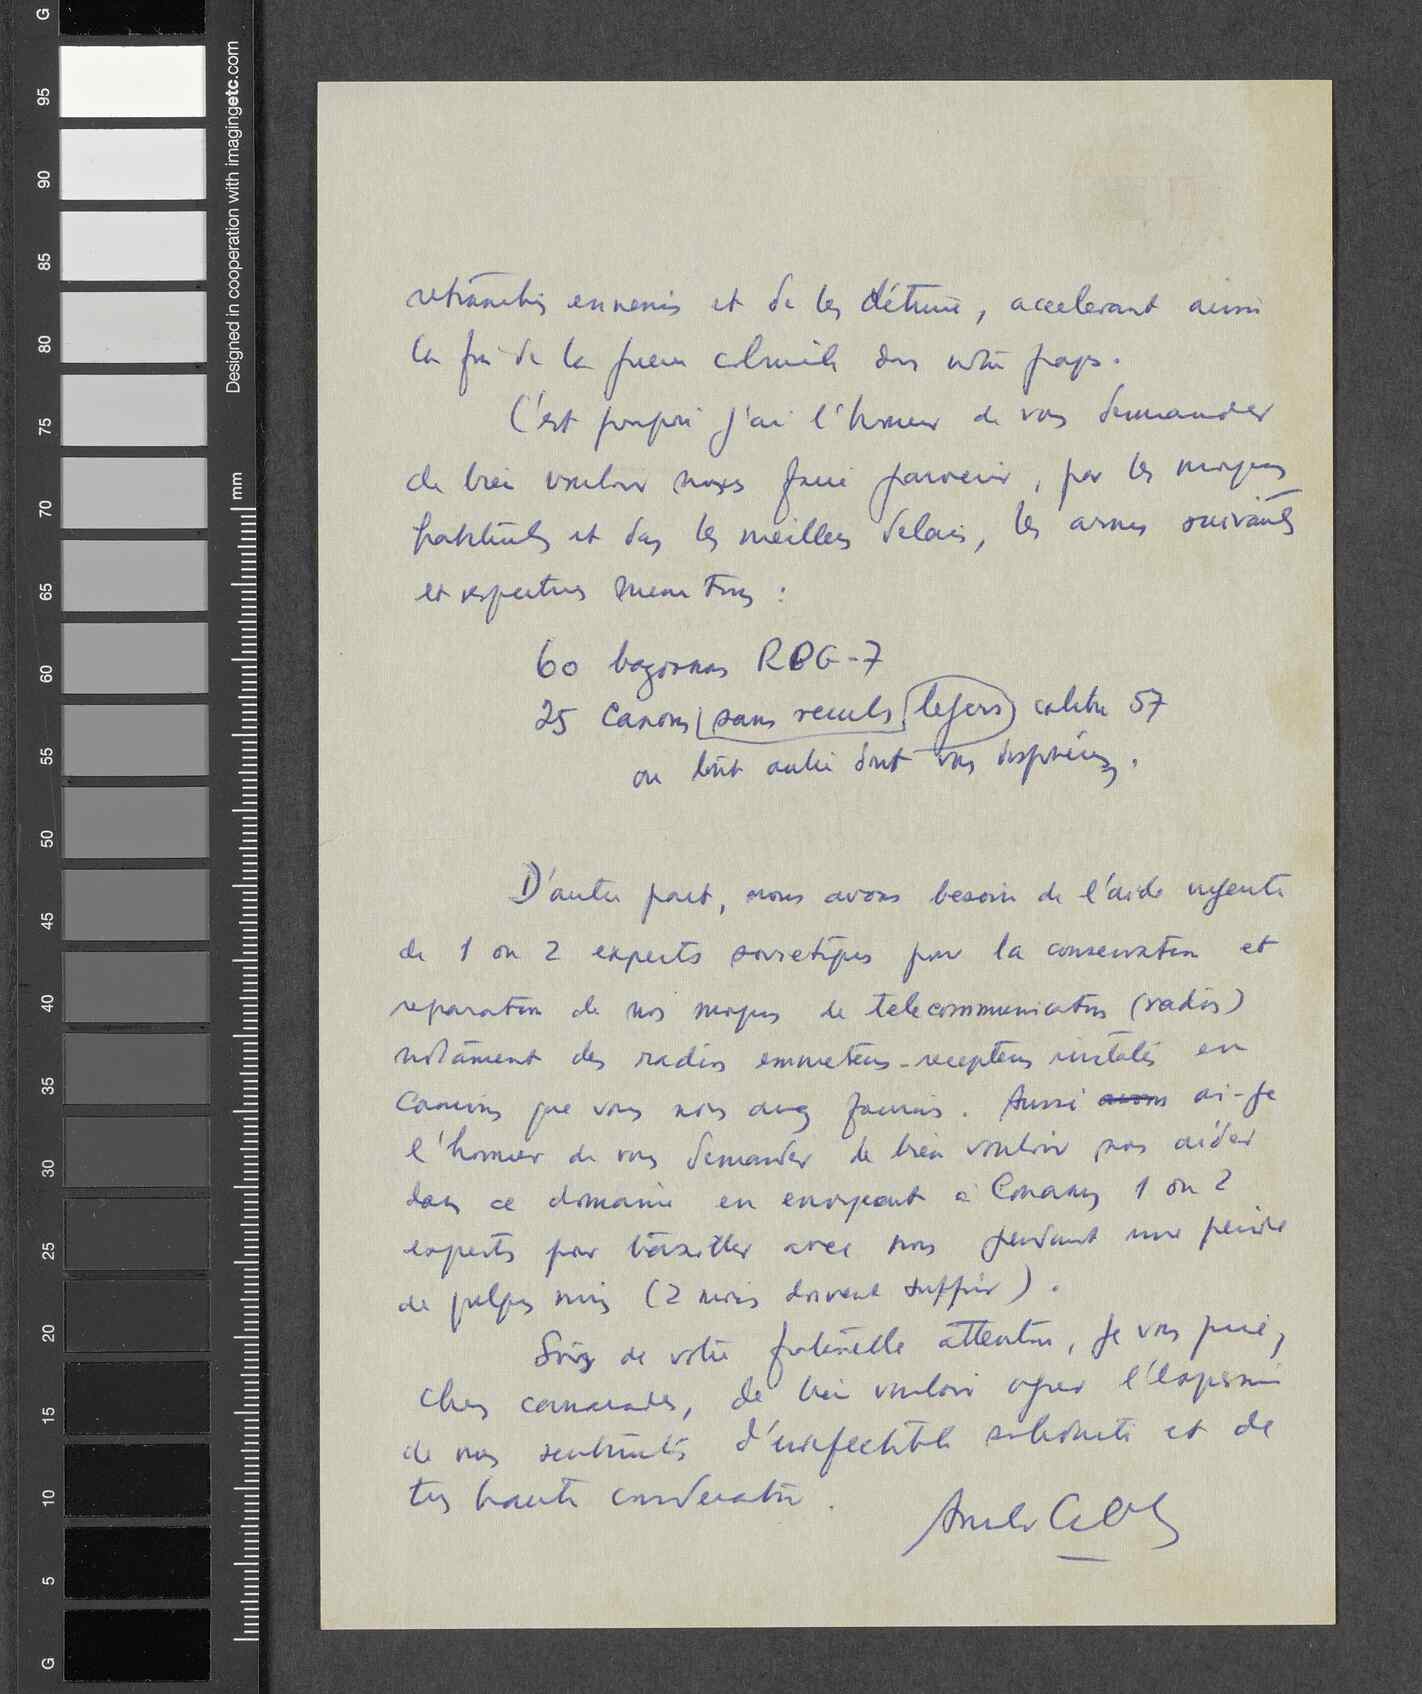 G
95
90
85
80
75
70
65
60
55
50
45
40
35
30
25
20
15
10
5
G
Designed in cooperation with imagingetc.com
mm
retranchés ennemis et de les détruire, accelerant ainsi
la fin de la guerre coloniale dans notre pays.
C'est pourquoi j'ai l'honneur de vous demander
de bien vouloir nous faire parvenir, par les moyens
habituels et dans les meilleurs delais, les armes suivantes
et respectives munitions :
60 bazookas RPG-7
25 Canons (sans reculs) (legers) calibre 57
ou tout autre dont vous disposeriez.
D'autre part, nous avons besoin de l'aide urgente
de 1 ou 2 experts sovietiques pour la conservation et
reparation de nos moyens de telecommunications (radios)
notament des radios emmeteurs-recepteurs instalés en
Camions que vous nous avez fournis. Aussi avons ai-je
l'honneur de vous demander de bien vouloir nous aider
dans ce domaine en envoyant à Conakry 1 ou 2
experts pour travailler avec nous pendant une periode
de quelques mois (2 mois doivent suffire).
Sûrs de votre fraternelle attention, je vous prie,
Chers camarades, de bien vouloir agreer l'expression
de nos sentiments d'indefectible solidarité et de
tres haute consideration.
Amilcar Cabral